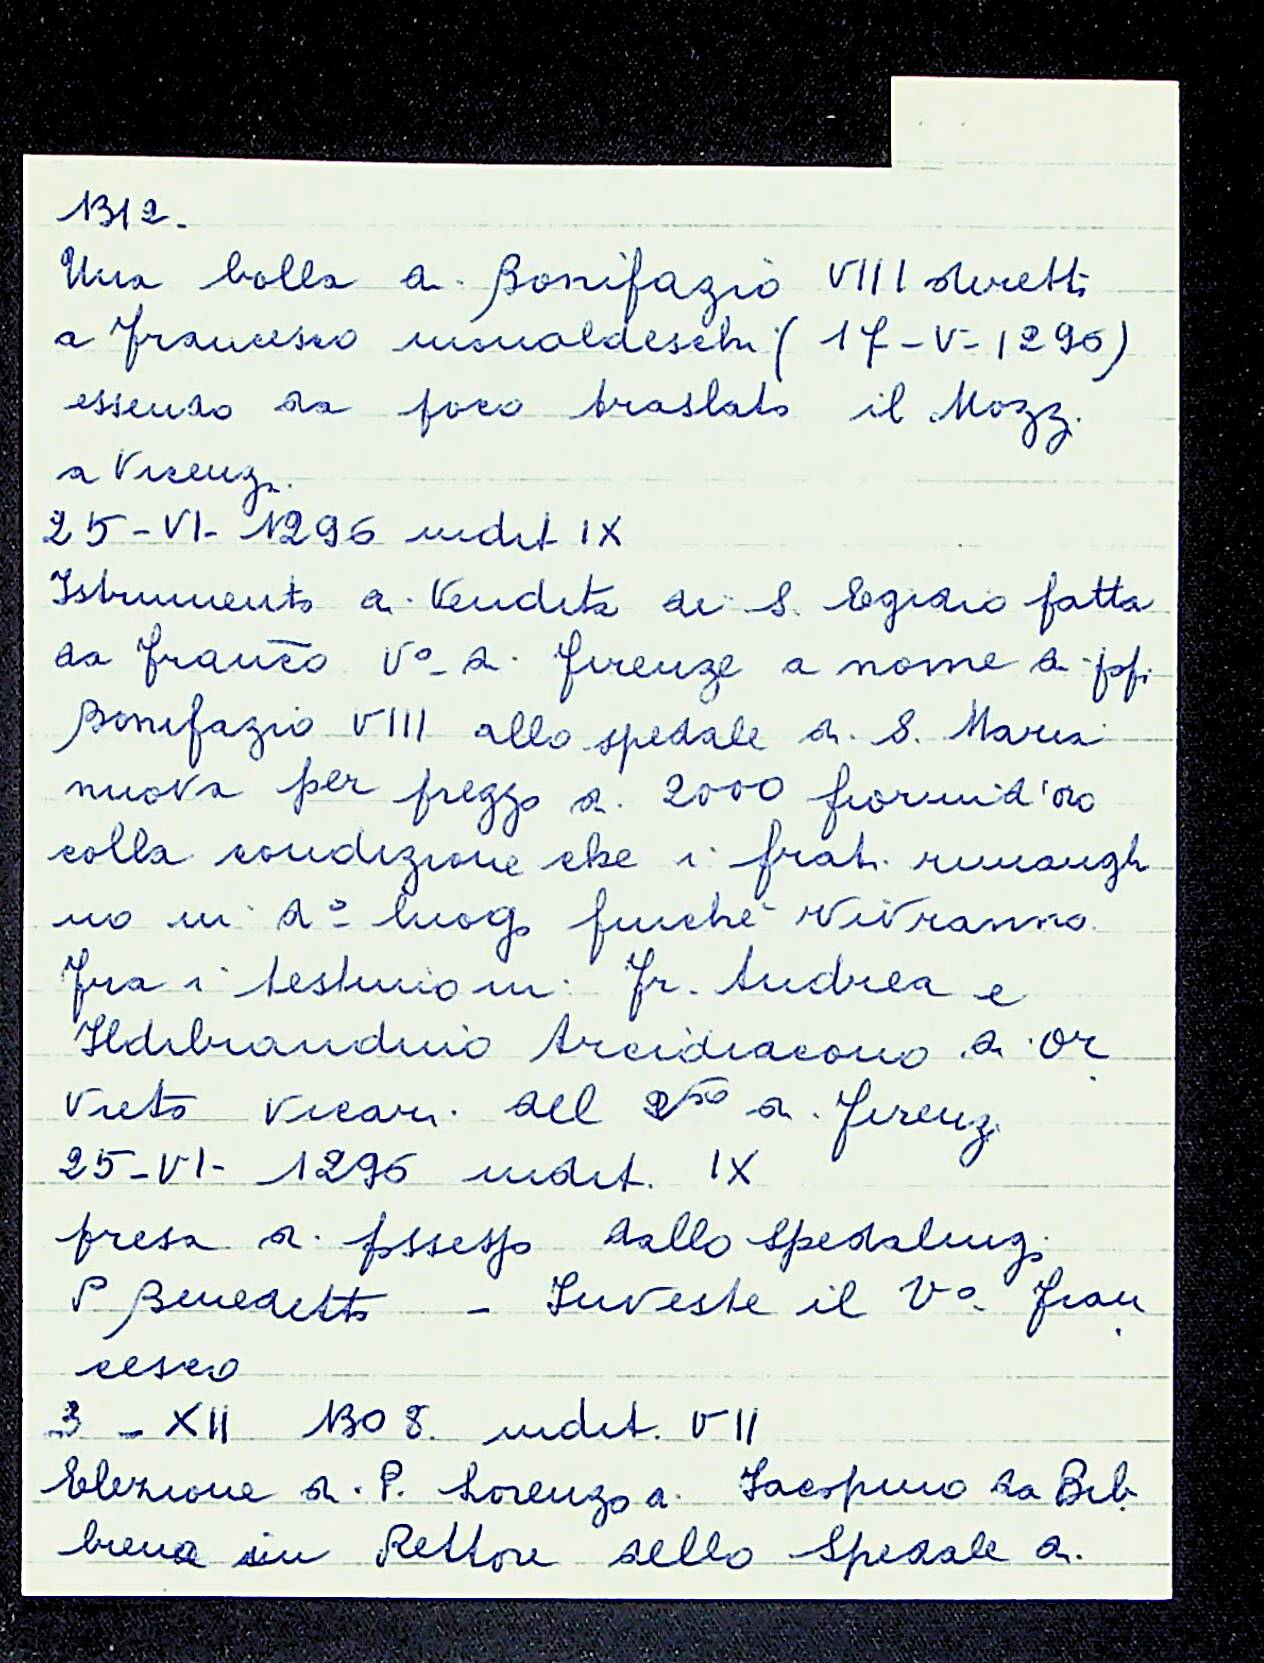 1312.
Una bolla di Bonifazio VIII diretta
a Francesco monaldeschi (17-V-1296)
essendo da poco traslato il Mozz.
a Vicenza.
25-VI-1296 indit IX
Istrumento di Vendita di S. Egidio fatta
da Franc̄o V° di Firenze a nome di pp.
Bonifazio VIII allo spedale di S. Maria
nuova per prezzo di 2000 fiorini d'oro
colla condizione che i frati rimangh
no in d° luogo finchè vivranno.
Fra i testimoni Fr. Andrea e
Ildibrandino Arcidiacono di Or
vieto vicari del di Firenze
25-VI-1296 indit. IX
presa di possesso dallo spedalingo
P Benedetto - Investe il V° Fran
cesco
3-XII 1308. indit. VII
Elezione di P. Lorenzo di Iacopino da Bib
biena in Rettore dello Spedale di